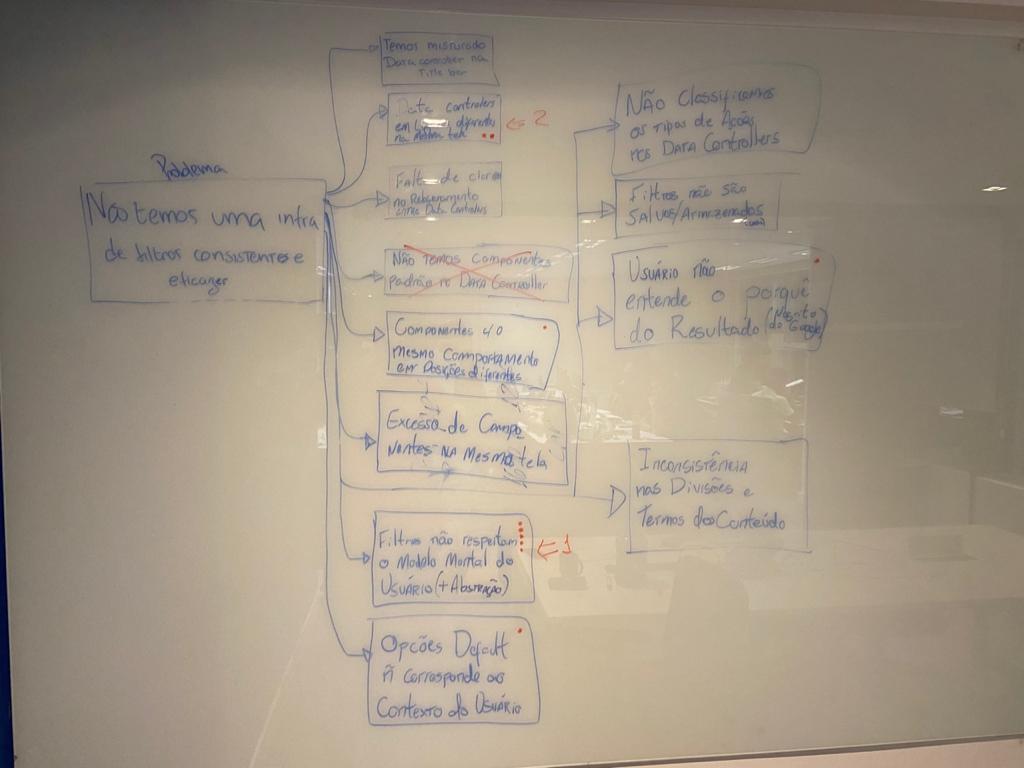 Problema
Não temos uma infra
de filtros consistentes e
eficazes
Temos misturado
Data controller na
Title bar
Data controllers
em diferentes
na mesma tela
⇐ 2
Falta de
no
entre Data Controllers
Não Temos Componentes
padrão no Data Controller
Componentes c/ o
mesmo Comportamento
em Posições diferentes
Excesso de Compo
nentes na Mesma tela
Filtros não respeitam
o Modelo Mental do
Usuário (+ Abstração)
⇐ 1
Opções Default
ñ corresponde ao
Contexto do Usuário
Não Classificamos
os tipos de Ações
nos Data Controllers
Filtros não são
Salvos/Armazenados
Usuário não
entende o porquê
do Resultado (
do Google)
Inconsistência
nas Divisões e
Termos do Conteúdo